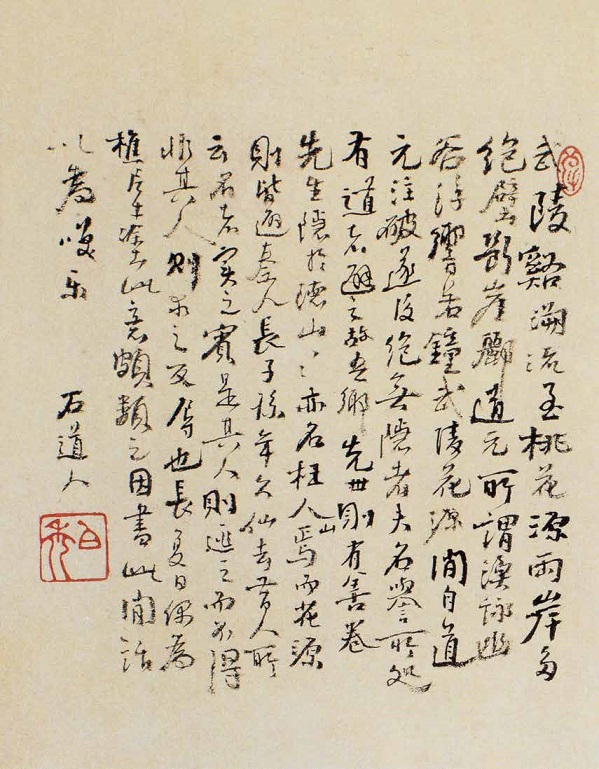 武陵谿溯流至桃花源兩岸多
絕壁斷崖酈道元所謂漁詠幽
谷浮響若鐘武陵花源間自道
元注破遂後絕無隱者夫名譽所処
有道者避之故吾鄉先世則有善卷
先生隱於德山山亦名枉人山焉而花源
則皆避秦人長子孫年久仙去昔人所
云名者實之賓是其人則逃之而不得
非其人則求之反辱也長夏日偶為
樵此意頗類之因書此閒話
以為嘆
石道人
白禿